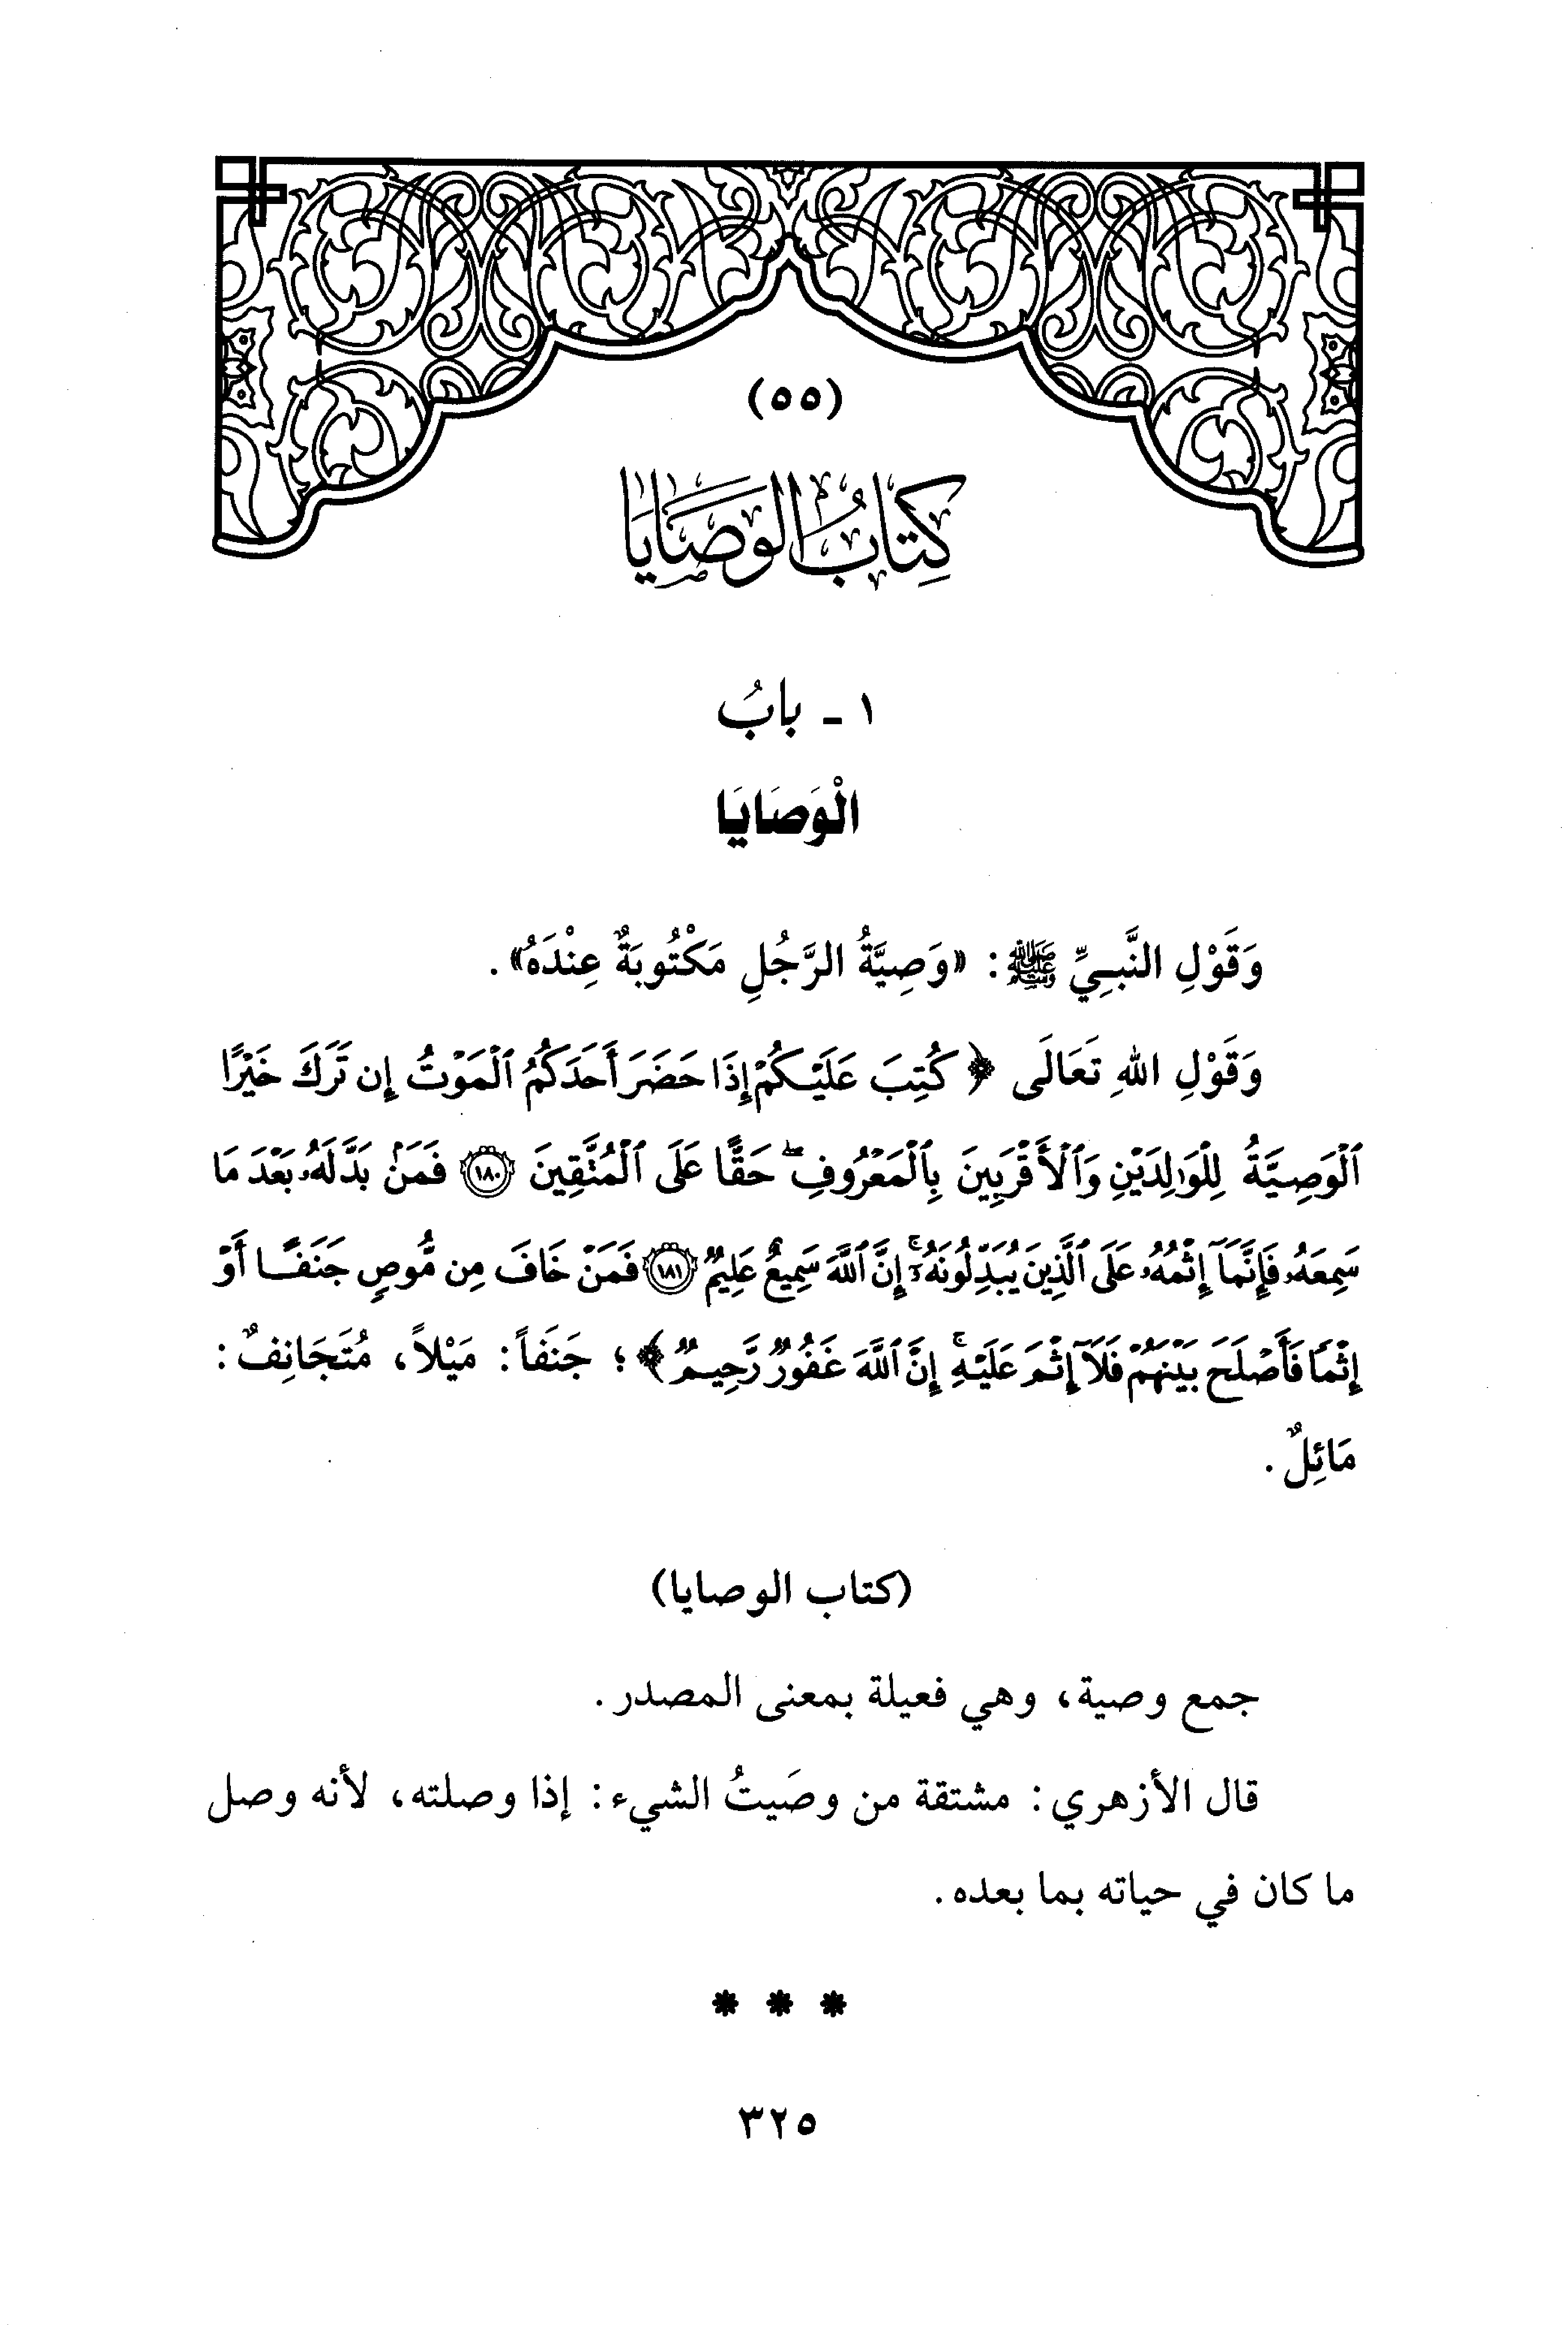 (٥٥)
كِتَابُ الوَصَايَا
١ ـ بابُ
الْوَصَايَا
وَقَوْلِ النَّبِيِّ ﷺ: «وَصِيَّةُ الرَّجُلِ مَكْتُوبَةٌ عِنْدَهُ».
وَقَوْلِ اللهِ تَعَالَى ﴿كُتِبَ عَلَيْكُمْ إِذَا حَضَرَ أَحَدَكُمُ ٱلْمَوْتُ إِن تَرَكَ خَيْرًا
ٱلْوَصِيَّةُ لِلْوَٰلِدَيْنِ وَٱلْأَقْرَبِينَ بِٱلْمَعْرُوفِ ۖ حَقًّا عَلَى ٱلْمُتَّقِينَ ١٨٠ فَمَنۢ بَدَّلَهُۥ بَعْدَ مَا
سَمِعَهُۥ فَإِنَّمَآ إِثْمُهُۥ عَلَى ٱلَّذِينَ يُبَدِّلُونَهُۥٓ ۚ إِنَّ ٱللَّهَ سَمِيعٌ عَلِيمٌ ١٨١ فَمَنْ خَافَ مِن مُّوصٍ جَنَفًا أَوْ
إِثْمًا فَأَصْلَحَ بَيْنَهُمْ فَلَآ إِثْمَ عَلَيْهِ ۚ إِنَّ ٱللَّهَ غَفُورٌ رَّحِيمٌ﴾؛ جَنَفاً: مَيْلاً، مُتَجَانِفٌ:
مَائِلٌ.
(كتاب الوصايا)
جمع وصية، وهي فعيلة بمعنى المصدر.
قال الأزهري: مشتقة من وصَيتُ الشيء: إذا وصلته، لأنه وصل
ما كان في حياته بما بعده.
* * *
٣٢٥